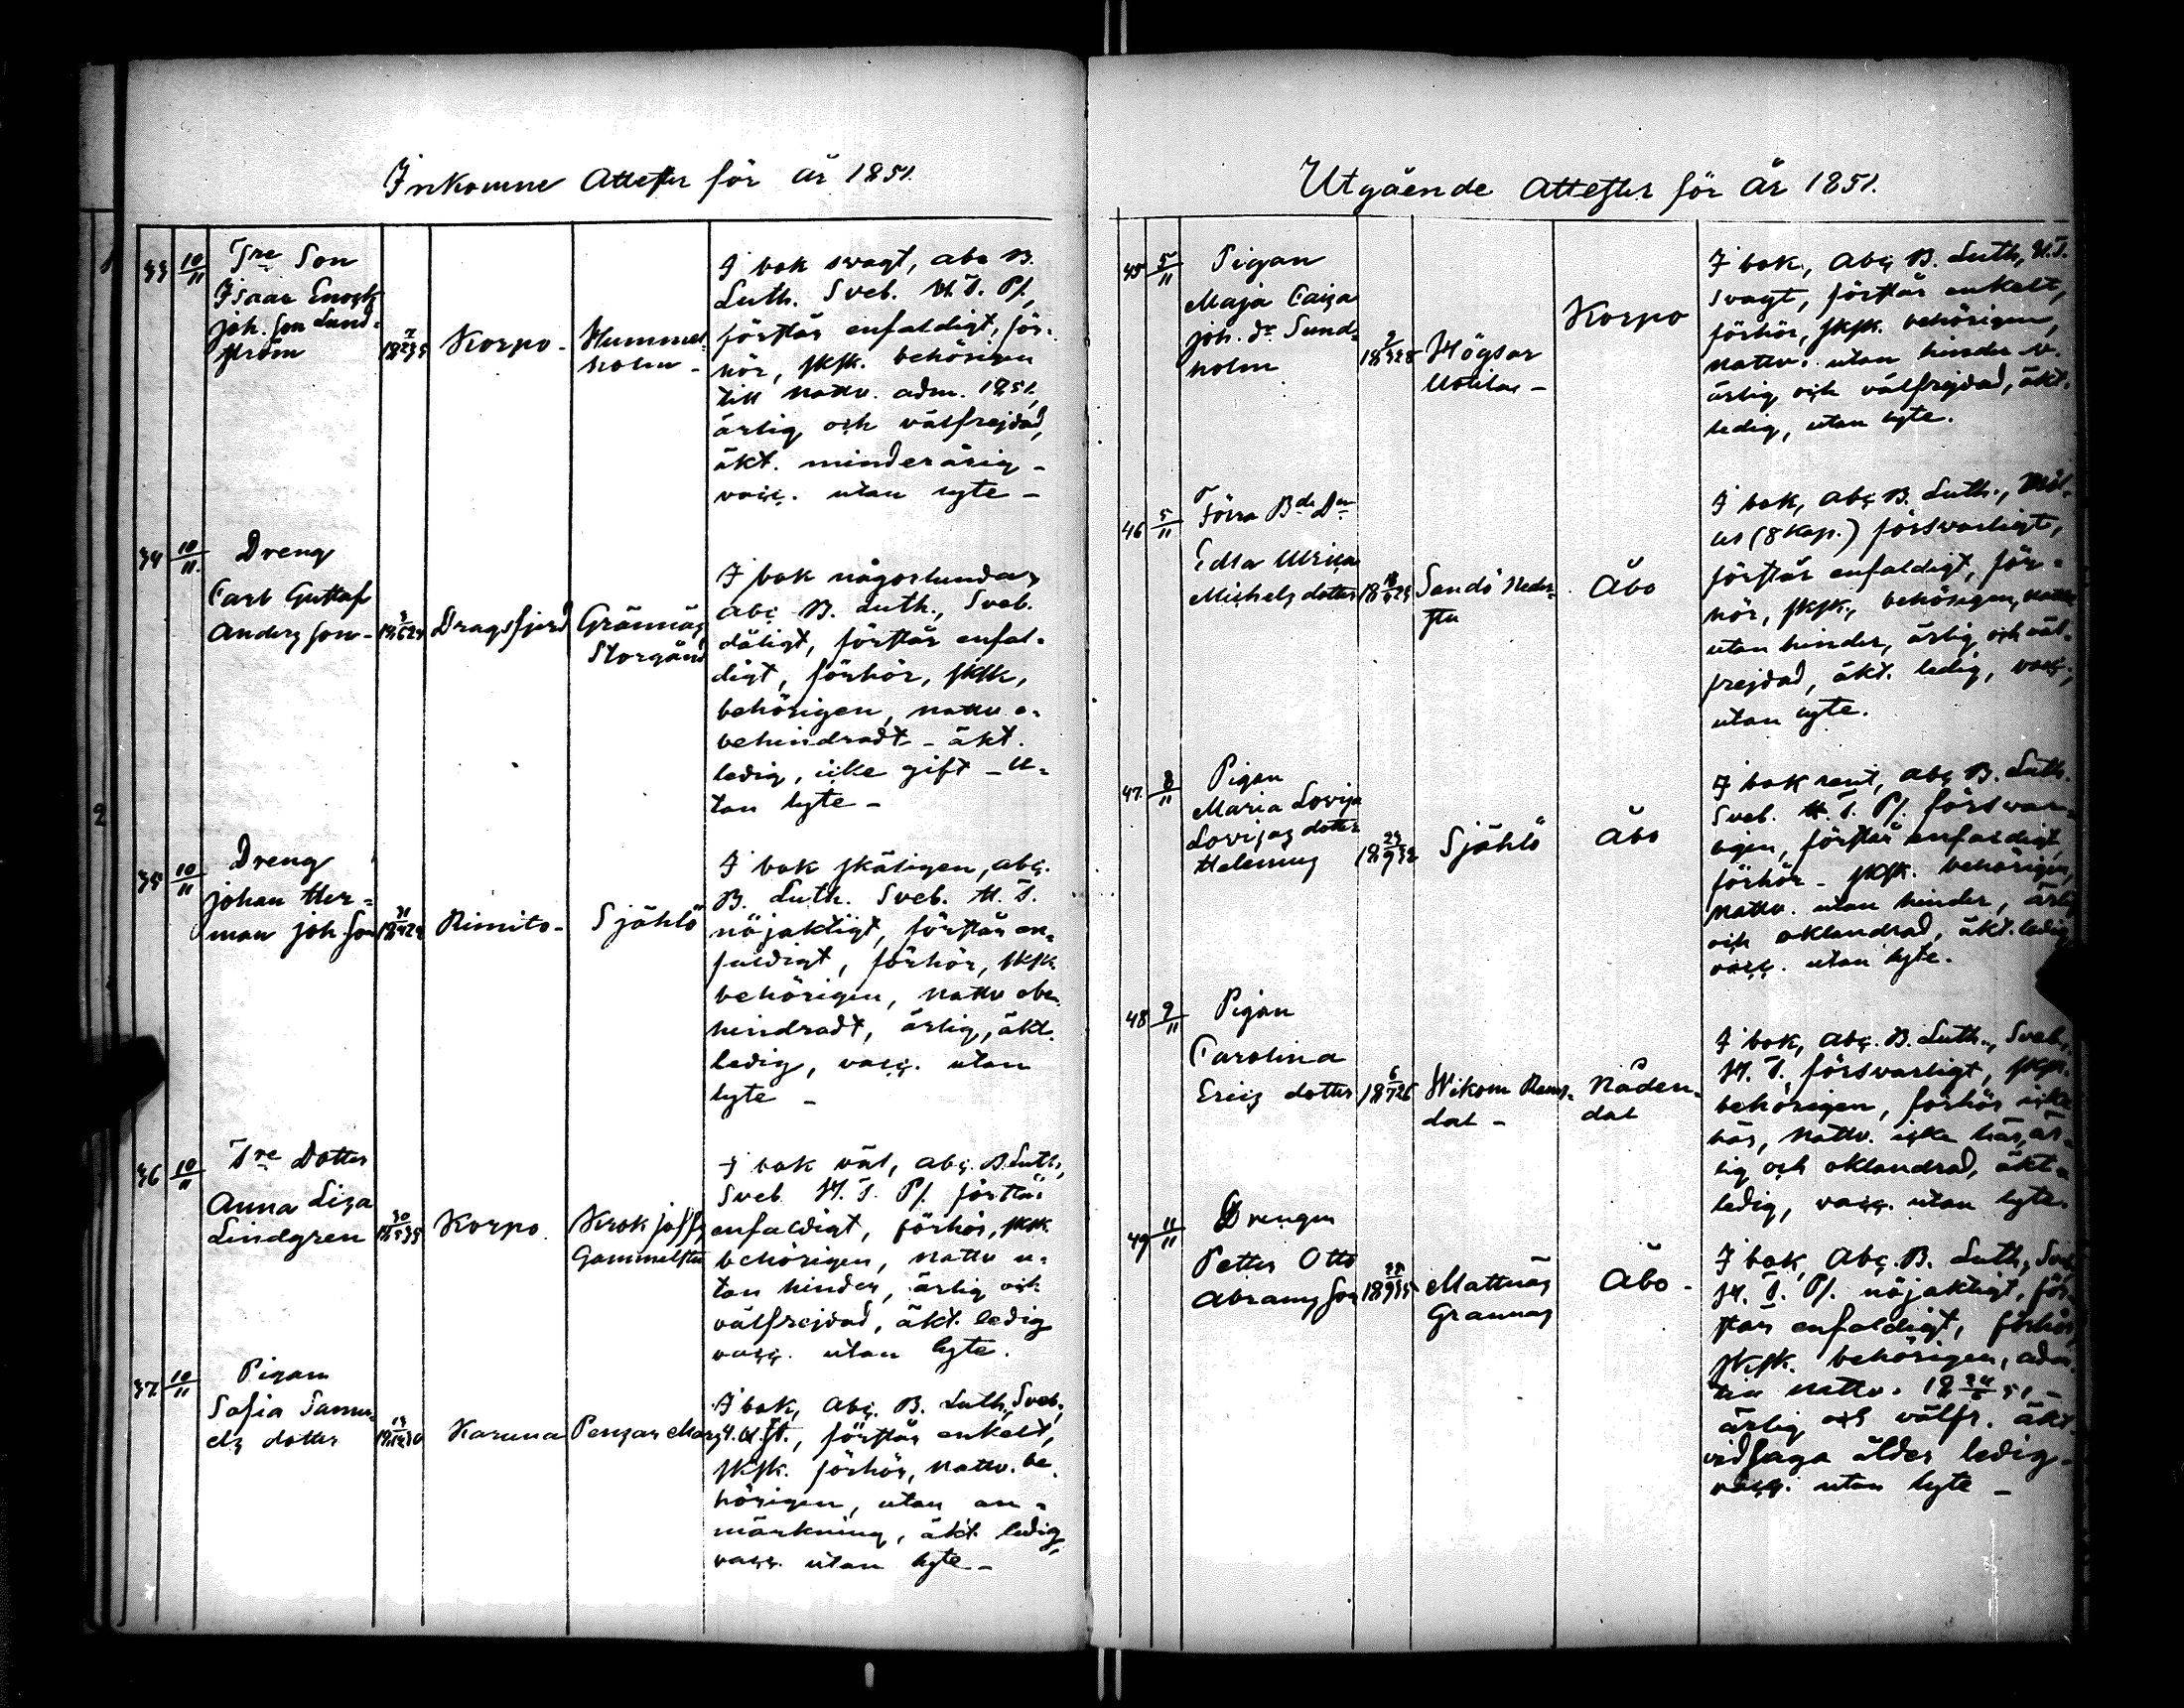 Inkomne Attester för år 1851.
33 10/11 Tre Son
Isaac Enoch
Joh. son Lund-
ström
Korpo -
Hummel-
holm -
I bok svagt, abc B.
Luth. Sveb. H. T. Ps.
förstår enfaldigt, för-
hör, sksk. behörigen
till nattv. adm. 1851,
ärlig och välfrejdad,
äkt. minderårig -
vacc. utan lyte -
34 10/11. Dreng
Carl Gustaf
Anders son -
Dragsfjerd
Grännäs
Storgård
I bok någorlunda,
abc B. Luth., Sveb.
dåligt, förstår enfal-
digt, förhör, sksk,
behörigen, nattv o-
behindradt - äkt.
ledig, icke gift - u-
tan lyte -
35 10/11 Dreng
Johan Her-
man Joh. son
Rimito -
Själö
I bok skäligen, abc.
B. Luth. Sveb. H. T.
nöjaktigt, förstår en-
faldigt, förhör, sksk
behörigen, nattv obe-
hindradt, ärlig, äkt.
ledig, vacc. utan
lyte -
36 10/11 Tre Dotter
Anna Lisa
Lindgren
Korpo
Krok Joffs
Gammelstu
I bok väl, abc. B. Luth,
Sveb H. T. Ps. förstår
enfaldigt, förhör, sksk
behörigen, nattv u-
tan hinder, ärlig och
välfrejdad, äkt. ledig
vacc. utan lyte.
37 10/11 Pigan
Sofia Samu-
els dotter
Karuna
Pensar
I bok, abc. B. Luth., Sveb.,
förstår enkelt,
sksk. förhör, nattv. be
hörigen, utan an-
märkning, äkt ledig,
vacc. utan lyte -
Utgående Attester för år 1851.
45 5/11 Pigan
Maja Caisa
Joh. dr. Sund-
holm
Högsar
Korpo
I bok, abc B. Luth, H.T.
svagt, förstår enkelt,
förhör, sksk. behörigen,
nattv. utan hinder
ärlig och välfrejdad, äkt.
ledig, utan lyte.
46 5/11 Förra Bde Dr
Edla Ulrica
Michels dotter
Sandö Neder-
stu
Åbo
I bok, abc B. Luth.,
(8 kap.) försvarligt,
förstår enfaldigt, för-
hör, sksk, behörigen, nattv
utan hinder, ärlig och väl-
frejdad, äkt. ledig, vacc,
utan lyte.
47. 8/11 Pigan
Maria Lovisa
Lovisas dotter
Helenius
Själö
Åbo
I bok rent, abc B. Luth.
Sveb. H. T. Ps. försvar-
ligen, förstår enfaldigt
förhör - sksk. behörigen,
nattv. utan hinder, ärlig
och oklandrad, äkt. ledig
vacc. utan lyte.
48 9/11 Pigan
Carolina
Erics dotter
Wikom
dal -
Nåden-
dal
I bok, abc. B. Luth., Sveb.,
H. T. försvarligt, sksk.
behörigen, förhör icke
här, nattv. icke här, är-
lig och oklandrad, äkt-
ledig, vacc. utan lyte.
49 11/11 Drengen
Petter Otto
Abrams son
Mattnäs
Grannas
Åbo -
I bok, Abc. B. Luth, Sveb,
H. T. Ps. nöjaktigt, för-
står enfaldigt, förhör,
sksk. behörigen, adm.
till nattv. -
ärlig och välfr. äkt.
vid laga ålder ledig -
vacc. utan lyte -